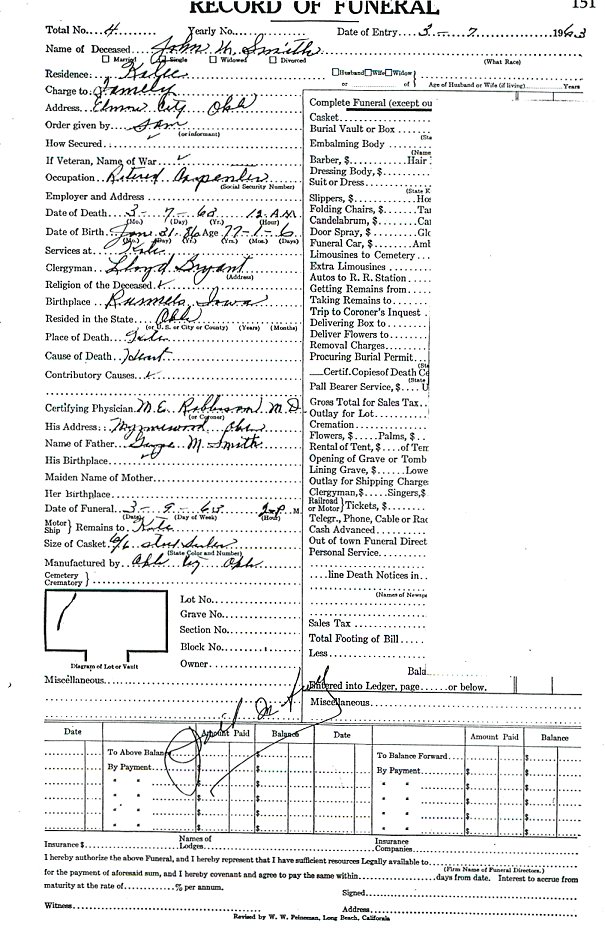 RECORD OF FUNERAL
151
Total No. 4 Yearly No. Date of Entry 3 - 7 1963
Name of Deceased John M. Smith
Married Single Widowed Divorced (What Race)
Residence Husband Wife Widow
or of Age of Husband or Wife (if living) Years
Charge to Family
Address Elmore City Okla
Order given by
(or informant)
How Secured
If Veteran, Name of War
Occupation Retired Carpenter
(Social Security Number)
Employer and Address
Date of Death 3 - 7 - 63 12 A.M.
(Mo.) (Day) (Yr.) (Hour)
Date of Birth Jan. 31 - 86 Age 77-1-6
(Mo.) (Day) (Yr.) (Yrs.) (Mos.) (Days)
Services at
Clergyman Lloyd Bryant
(Address)
Religion of the Deceased
Birthplace Iowa
Resided in the State Okla
(or U. S. or City or County) (Years) (Months)
Place of Death
Cause of Death Heart
Contributory Causes
Certifying Physician M. E. Robberson M.D.
(or Coroner)
His Address Wynnewood Okla
Name of Father George M. Smith
His Birthplace
Maiden Name of Mother
Her Birthplace
Date of Funeral 3 - 9 - 63 2 - P. M.
(Date) (Day of Week) (Hour)
Motor Ship Remains to
Size of Casket 6/6
(State Color and Number)
Manufactured by Okla Okla
Cemetery
Crematory
Lot No.
Grave No.
Section No.
Block No.
Owner
Diagram of Lot or Vault
Miscellaneous
Complete Funeral (except ou
Casket
Burial Vault or Box
(Sta
Embalming Body
(Name
Barber, $ Hair
Dressing Body, $
Suit or Dress
(State K
Slippers, $ Hos
Folding Chairs, $ Tar
Candelabrum, $ Ca
Door Spray, $ Glo
Funeral Car, $ Aml
Limousines to Cemetery
Extra Limousines
Autos to R. R. Station
Getting Remains from
Taking Remains to
Trip to Coroner's Inquest
Delivering Box to
Deliver Flowers to
Removal Charges
Procuring Burial Permit
(Sta
Certif. Copies of Death Ce
(State
Pall Bearer Service, $ U
Gross Total for Sales Tax
Outlay for Lot
Cremation
Flowers, $ Palms, $
Rental of Tent, $ of Ten
Opening of Grave or Tomb
Lining Grave, $ Lowe
Outlay for Shipping Charge
Clergyman, $ Singers, $
Railroad or Motor Tickets, $
Telegr., Phone, Cable or Rac
Cash Advanced
Out of town Funeral Direct
Personal Service
line Death Notices in
(Names of Newspa
Sales Tax
Total Footing of Bill
Less
Bala
Entered into Ledger, page or below.
Miscellaneous
Date Amount Paid Balance Date Amount Paid Balance
To Above Balance $ To Balance Forward $
By Payment $ $ By Payment $ $
" " $ $ " " $ $
" " $ $ " " $ $
" " $ $ " " $ $
" " $ $ " " $ $
Insurance $ Names of Lodges Insurance Companies
I hereby authorize the above Funeral, and I hereby represent that I have sufficient resources Legally available to
(Firm Name of Funeral Directors.)
for the payment of aforesaid sum, and I hereby covenant and agree to pay the same within days from date. Interest to accrue from
maturity at the rate of % per annum.
Signed
Witness Address
Revised by W. W. Feineman, Long Beach, California